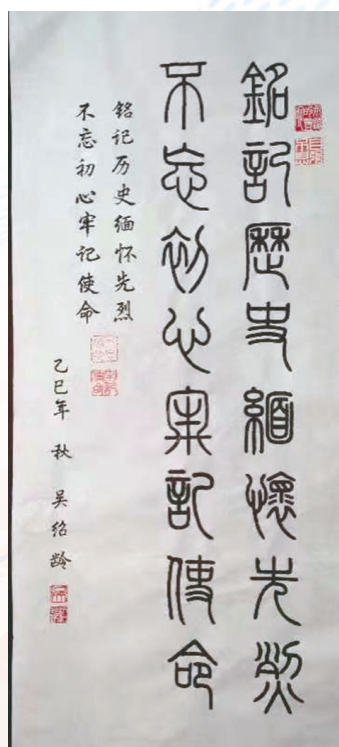 銘記歷史緬懷先烈
不忘初心牢記使命
铭记历史缅怀先烈
不忘初心牢记使命
乙巳年 秋 吴绍龄